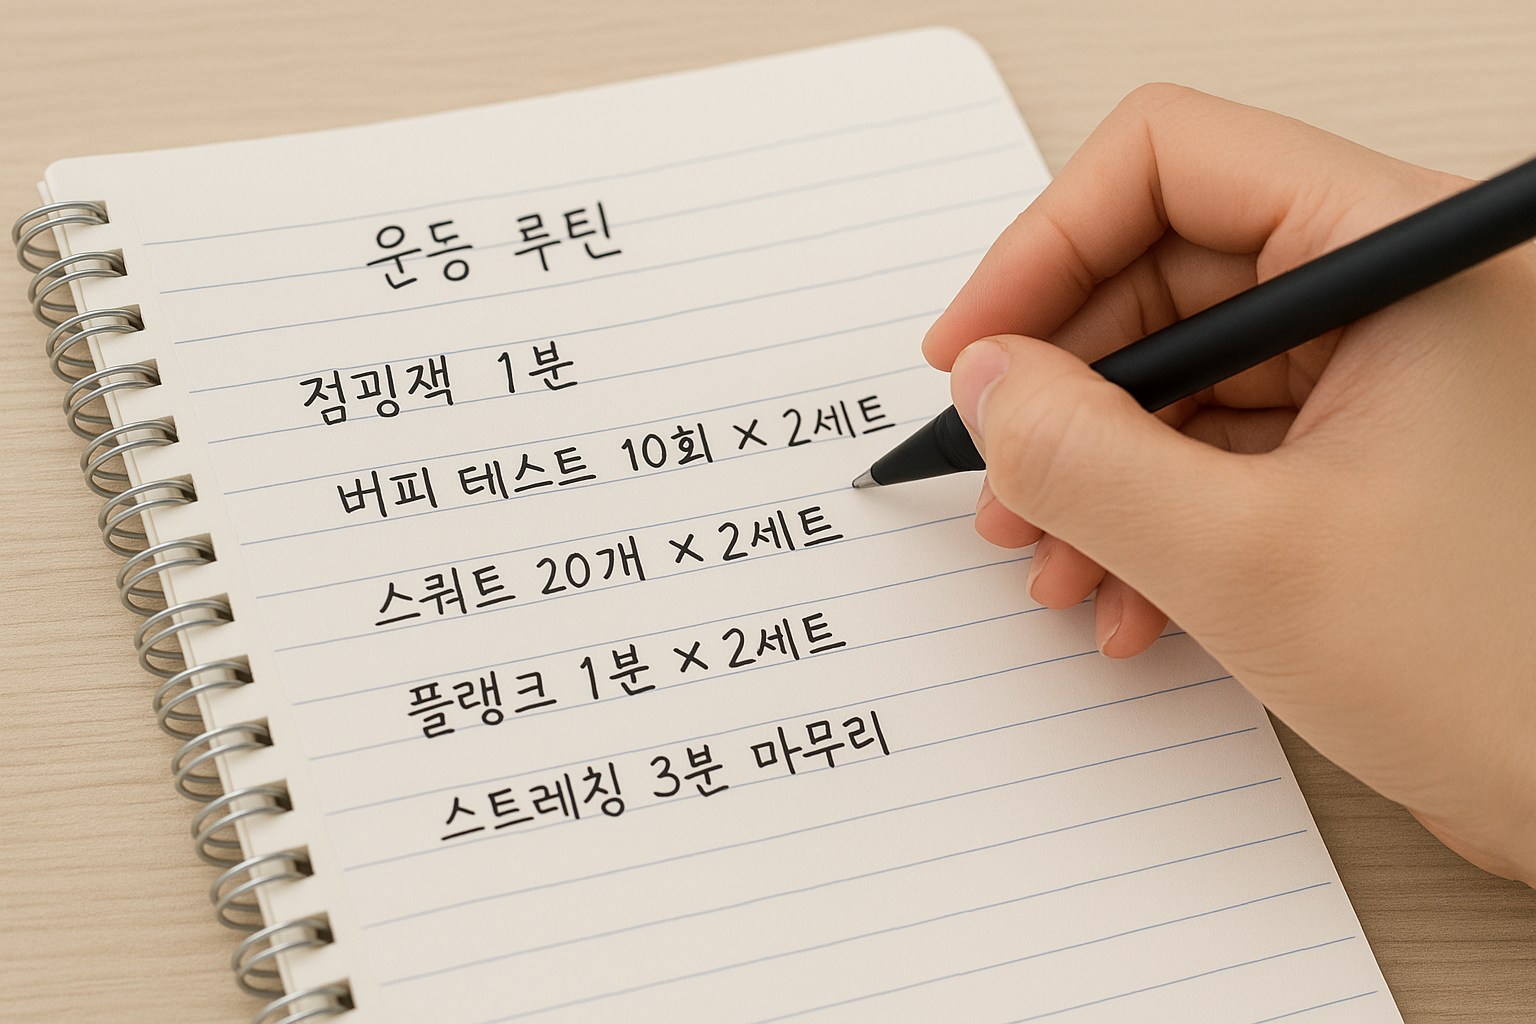 운동 루틴
점핑잭 1분
버피 테스트 10회 × 2세트
스쿼트 20개 × 2세트
플랭크 1분 × 2세트
스트레칭 3분 마무리